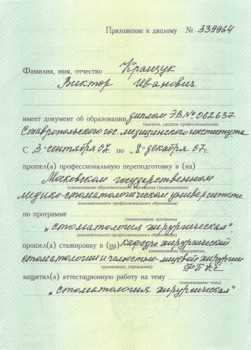 Приложение к диплому № 339964
Фамилия, имя, отчество Кращук
Виктор Иванович
имеет документ об образовании диплом ЭВ № 062637
Ставропольского гос. медицинского института
С 3 сентября 07. по 8 декабря 07.
прошел(а) профессиональную переподготовку в (на)
Московском государственном
медико-стоматологическом университете
по программе
"стоматология хирургическая"
прошел(а) стажировку в (на) кафедре хирургической
стоматологии и челюстно-лицевой хирургии
защитил(а) аттестационную работу на тему
"стоматология хирургическая"